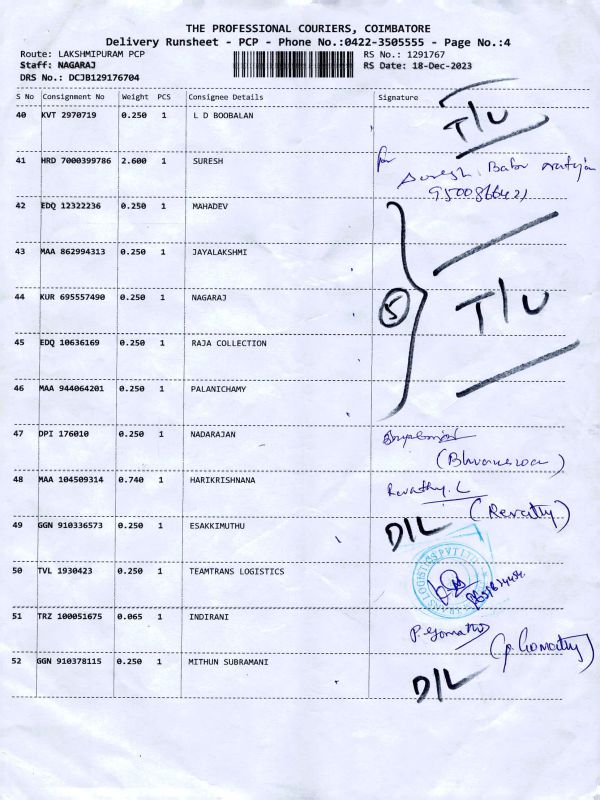 THE PROFESSIONAL COURIERS, COIMBATORE
Delivery Runsheet - PCP - Phone No.:0422-3505555 - Page No.:4
Route: LAKSHMIPURAM PCP RS No.: 1291767
Staff: NAGARAJ RS Date: 18-Dec-2023
DRS No.: DCJB129176704
S No Consignment No Weight PCS Consignee Details Signature
40 KVT 2970719 0.250 1 L D BOOBALAN T/U
41 HRD 7000399786 2.600 1 SURESH for
Suresh. Babu
9500866421
42 EDQ 12322236 0.250 1 MAHADEV
43 MAA 862994313 0.250 1 JAYALAKSHMI
44 KUR 695557490 0.250 1 NAGARAJ 5 T/U
45 EDQ 10636169 0.250 1 RAJA COLLECTION
46 MAA 944064201 0.250 1 PALANICHAMY
47 DPI 176010 0.250 1 NADARAJAN
48 MAA 104509314 0.740 1 HARIKRISHNANA Revathy. L
(Revathy)
49 GGN 910336573 0.250 1 ESAKKIMUTHU D/L
50 TVL 1930423 0.250 1 TEAMTRANS LOGISTICS
51 TRZ 100051675 0.065 1 INDIRANI P. Gomathy
(P. Gomathy)
52 GGN 910378115 0.250 1 MITHUN SUBRAMANI D/L